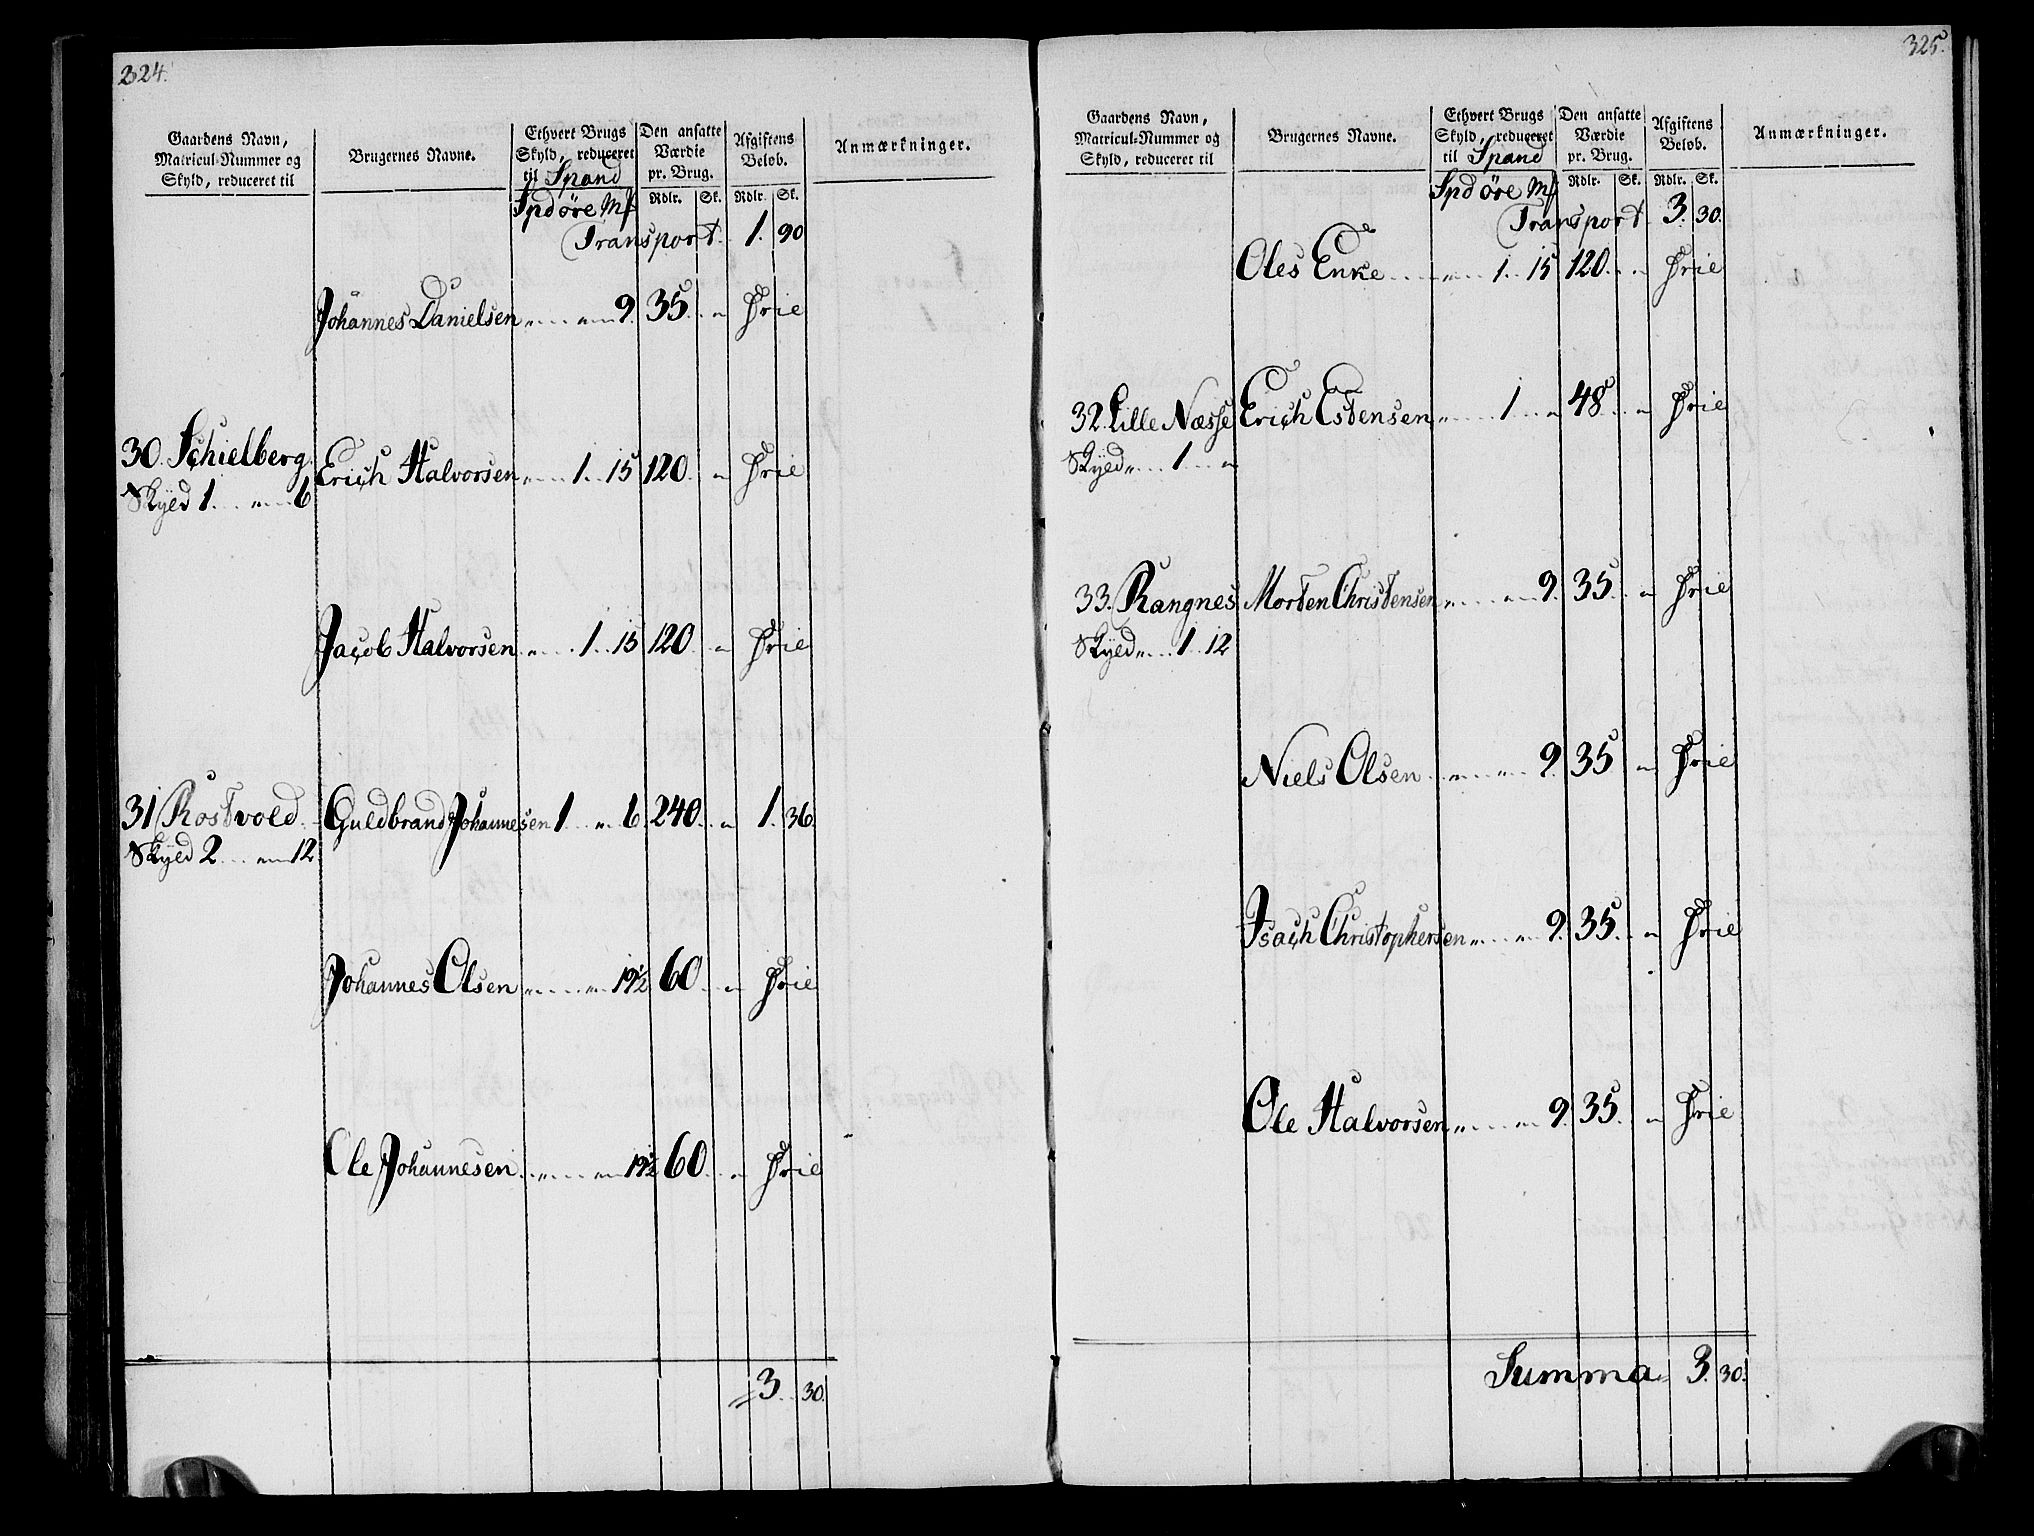 324.
Gaardens Navn, Matricul-Nummer og Skyld, reduceret til | Brugernes Navne. | Ethvert Brugs Skyld, reduceret til Spand | Den ansatte Værdie pr. Brug. | Afgiftens Beløb. | Anmærkninger.
Spd öre Mſ | Rdlr. | Sk. | Rdlr. | Sk.
Transport. 1. 90
Johannes Danielsen „ „ 9. 35. „ Frie
30. Schielberg. Erich Halvorsen „ 1. 15 120. „ Frie
Skyld 1. „ 6
Jacob Halvorsen „ 1. 15 120 „ Frie
31 Rostvold Guldbrand Johannesen 1 „ 6. 240. „ 1. 36.
Skyld 2 „ 12
Johannes Olsen „ „ 19½ 60. „ Frie
Ole Johannesen „ „ 19½ 60. „ Frie
3. 30.
325.
Gaardens Navn, Matricul-Nummer og Skyld, reduceret til | Brugernes Navne. | Ethvert Brugs Skyld, reduceret til Spand | Den ansatte Værdie pr. Brug. | Afgiftens Beløb. | Anmærkninger.
Spd öre Mſ | Rdlr. | Sk. | Rdlr. | Sk.
Transport 3. 30.
Oles Enke „ 1. 15 120. „ Frie
32. Lille Næsse Erich Estensen „ 1 „ 48. „ Frie
Skyld „ 1 „
33. Rangnes Morten Christensen „ „ 9. 35. „ Frie
Skyld „ 1. 12
Niels Olsen „ „ 9. 35 „ Frie
Isach Christophersen „ „ 9. 35. „ Frie
Ole Halvorsen „ „ 9. 35. „ Frie
Summa 3. 30.